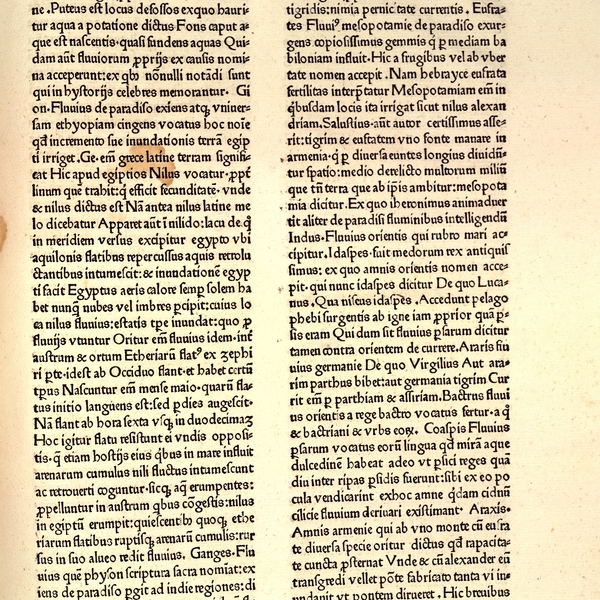 ne.Puteus est locus defossos ex quo hauri⸗
tur aqua a potatione dictus Fons caput a⸗
que est nascentis·quasi fundens aquas Qui⸗
dam aūt fluuiorum ꝓprijs ex causis nomi⸗
na acceperunt:ex qbꝰ nōnulli notādi sunt
qui in hystorijs celebres memorantur. Gi
on·Fluuius de paradiso exiens atqꝫ vniuer⸗
sam ethyopiam cingens vocatus hoc noīe
qđ incremento sue inundationis terrā egip
ti irriget.Ge·em̄ grece latine terram signifi⸗
cat Hic apud egiptios Nilus vocatur·ꝓpt̄
limum quē trahit:q̇ efficit fecunditatē· vnde
& nilus dictus est Nā antea nilus latine me
lo dicebatur Apparet aūt ī nilido:lacu de.q̇
in meridiem versus excipitur egypto vbi
aquilonis flatibus repercussus aquis retrolu
ctantibus intumescit:& inundationē egyp
ti facit Egyptus aeris calore semp̱ solem ha
bet nunq̄ nubes vel imbres p̱cipit:cuius lo
ca nilus fluuius:estatis tp̄e inundat:quo ꝓ
fluuijs vtuntur Oritur em̄ fluuius idem·inf̄
austrum & ortum Etheriarū flatꝰ ex zephi
ri p̱te·idest ab Occiduo flant·et habet certū
tp̄us Nascuntur em̄ mense maio·quarū fla⸗
tus initio languens est:sed p̱ dies augescit·
Nā flant ab hora sexta vsqꝫ in duodecimaꝫ
Hoc igitur flatu resistunt ei vndis opposi⸗
tis·q̇ etiam hostijs eius qbus in mare influit
arenarum cumulis nili fluctus intumescunt
ac retrouerti coguntur·sicqꝫ aq̄ erumpentes:
ꝓpelluntur in austrum qbus cōgestis:nilus
in egiptū erumpit:quiescentibꝰ quoqꝫ ethe
riarum flatibus ruptisqꝫ arenarū cumulis:rur
sus in suo alueo redit fluuius. Ganges·Flu
uius quē physon scriptura sacra nomīat:ex
iens de paradiso p̱git ad indie regiones:di
tigridis:nimia pernicitate currentis. Eufra⸗
tes Fluuiꝰ mesopotamie de paradiso exur⸗
gens copiosissimus gemmis q̇ p̱ mediam ba
biloniam influit·Hic a frugibus vel ab vber
tate nomen accepit .Nam hebrayce eufrata
fertilitas interp̄tatur Mesopotamiam em̄ in
q̇busdam locis ita irrigat sicut nilus alexan
driam.Salustius·aūt autor certissimus asse⸗
rit:tigrim & eufratem vno fonte manare in
armenia·q̇ p̱ diuersa euntes longius diuidū⸗
tur spatio:medio derelicto multorum miliū
que tn̄ terra que ab ip̄is ambitur:mesopota
mia dicitur.Ex quo iheronimus animaduer
tit aliter de paradisi fluminibus intelligendū
Indus·Fluuius orientis qui rubro mari ac⸗
cipitur.Idaspes·fuit medorum rex antiquis
simus:ex quo amnis orientis nomen acce⸗
pit·qui nunc idaspes dicitur De quo Luca⸗
nus .Qua niseus idaspes .Accedunt pelago
phebi surgentis ab igne iam ꝓprior quā p̱⸗
sis eram Qui dum sit fluuius p̱sarum dicitur
tamen contra orientem decurrere.Araris flu
uius germanie De quo Virgilius Aut ara⸗
rim parthus bibet:aut germania tigrim Cur
rit em̄ p̱ parthiam & assiriam.Bactrus fluui
us orientis a rege bactro vocatus fertur·a q̇
& bactriani & vrbs eorꝫ. Coaspis Fluuius
p̱sarum vocatus eorū lingua qđ mirā aque
dulcedinē habeat adeo vt p̱sici reges quā
diu inter ripas p̱sidis fuerunt:sibi ex eo po
cula vendicarint exhoc amne q̇dam cidnū
cilicie fluuium deriuari existimant· Araxis·
Amnis armenie qui ab vno monte cū eufra
te diuersa specie oritur dictus qđ rapacita⸗
te cuncta ꝓsternat Vnde & cū alexander eū
transgredi vellet pōte fabricato tanta vi in⸗
undauit vt pontem dirueret .Hic breuibus